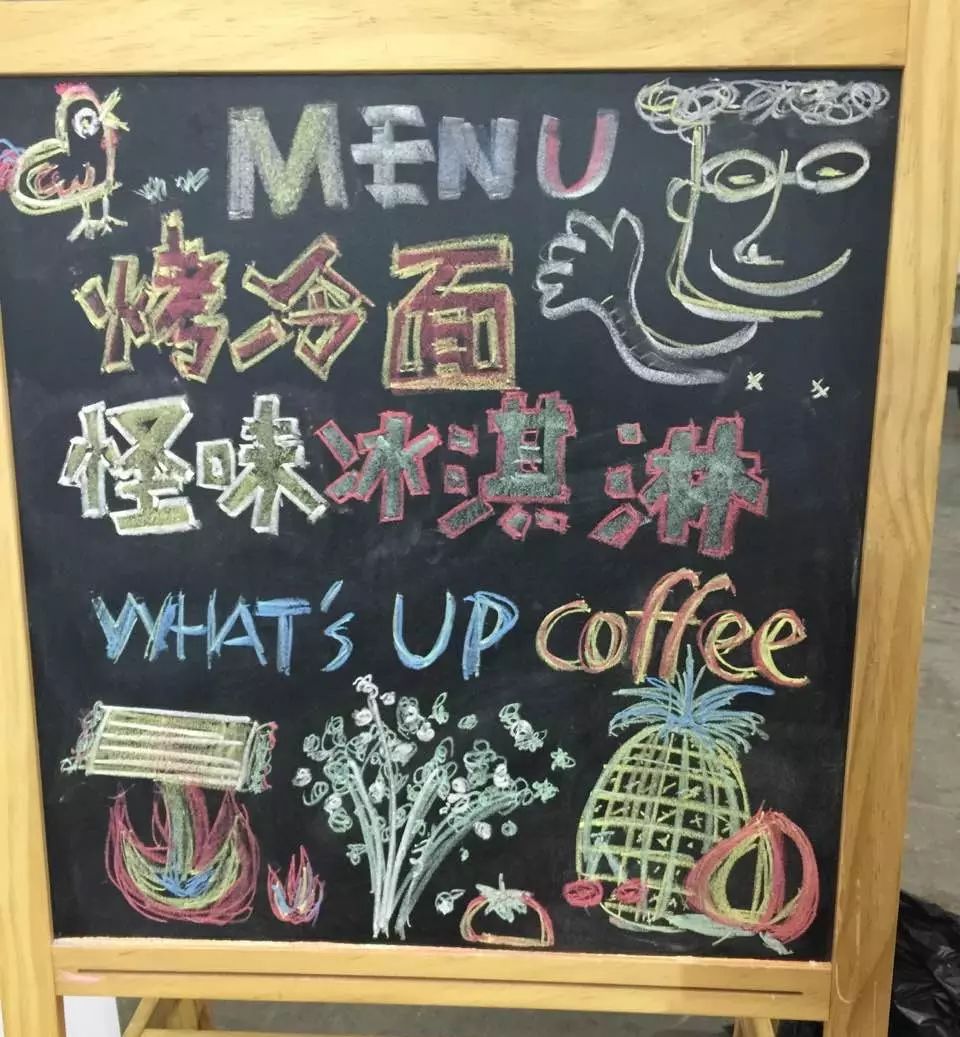 MENU
烤冷面
怪味冰淇淋
WHAT's UP coffee